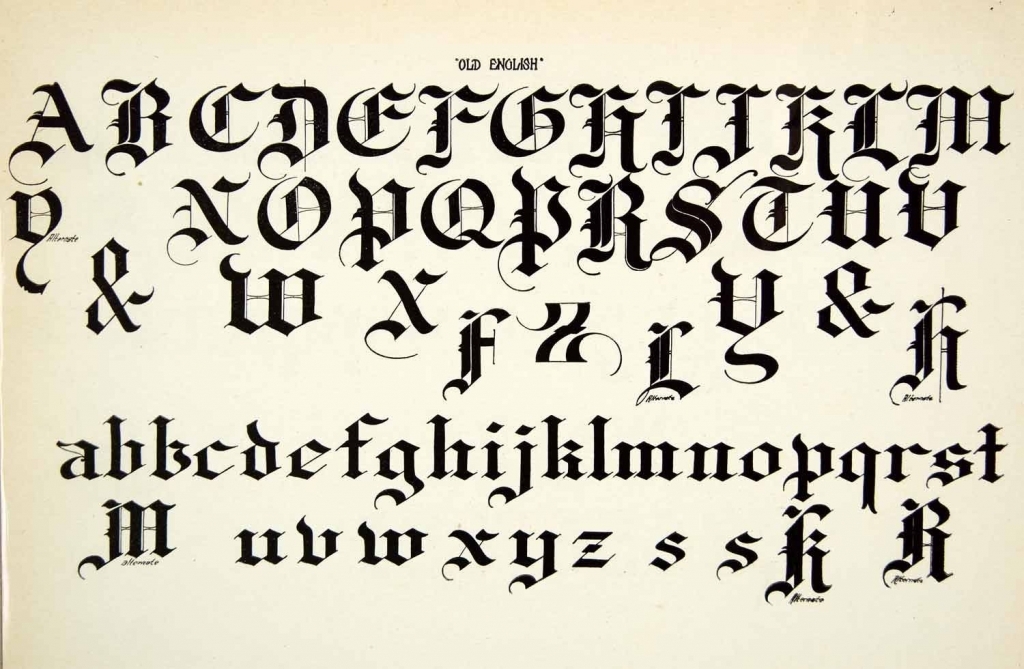 "OLD ENGLISH"
A B C D E F G H I J K L M
Y N O P Q P R S T U V
Alternate
& W X Y &
F Z L H
Alternate Alternate
a b b c d e f g h i j k l m n o p q r s t
M u v w x y z s s K R
alternate Alternate Alternate